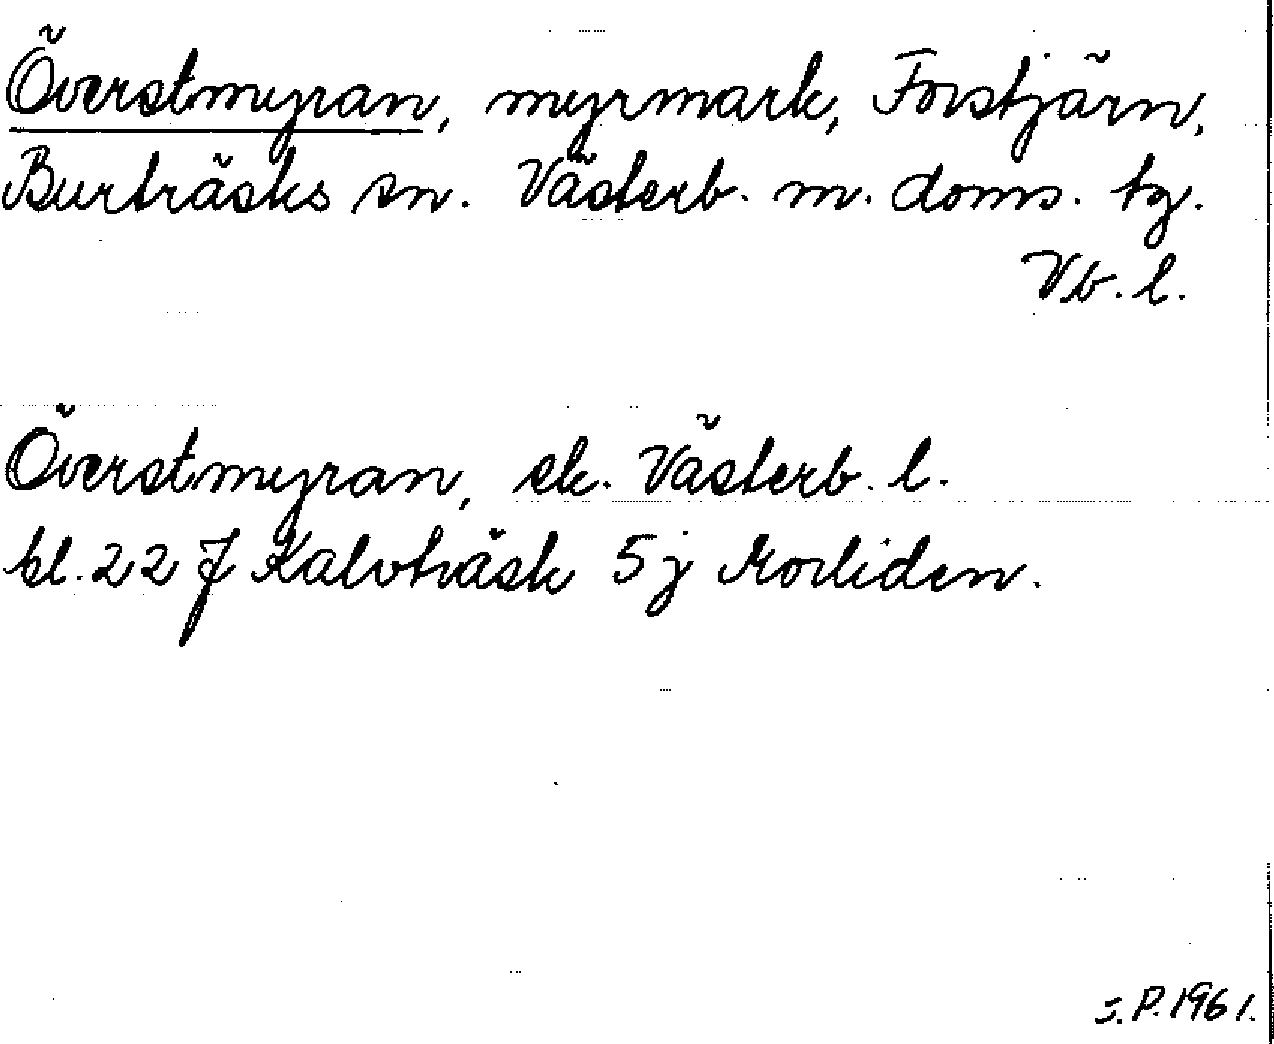 Överstmyran, myrmark, Forstjärn,
Burträsks sn. Västerb. m. doms. tg.
Vb. l.
Överstmyran, ek. Västerb. l.
bl. 22 J Kalvträsk 5 j Morliden.
J.P. 1961.